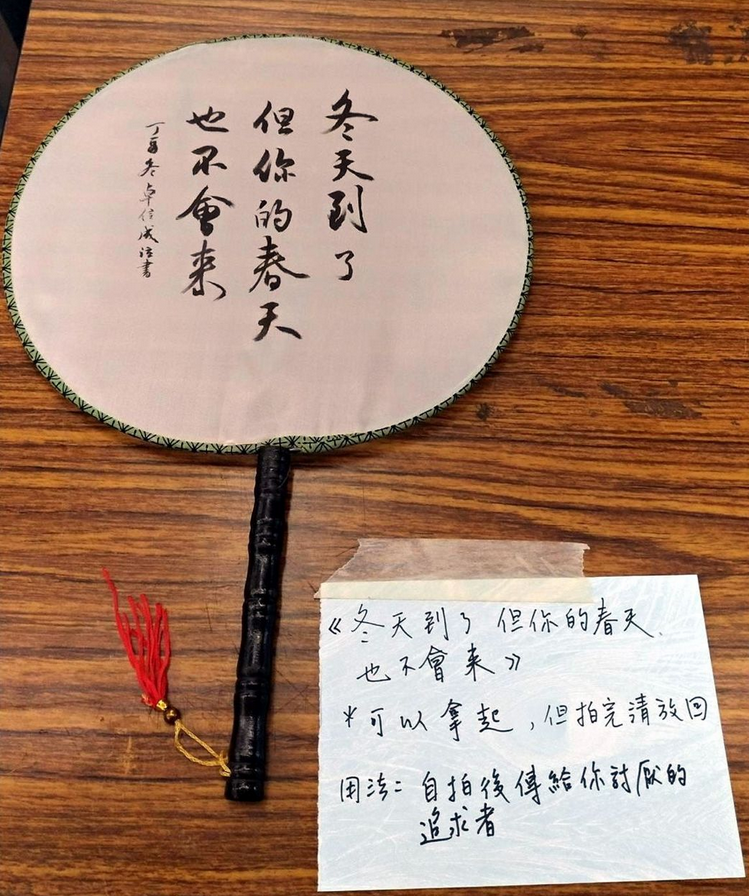 冬天到了
但你的春天
也不會来
丁酉冬卓信成浩書
《冬天到了 但你的春天
也不會来》
*可以拿起，但拍完清放回
用法：自拍後傳給你討厭的
追求者